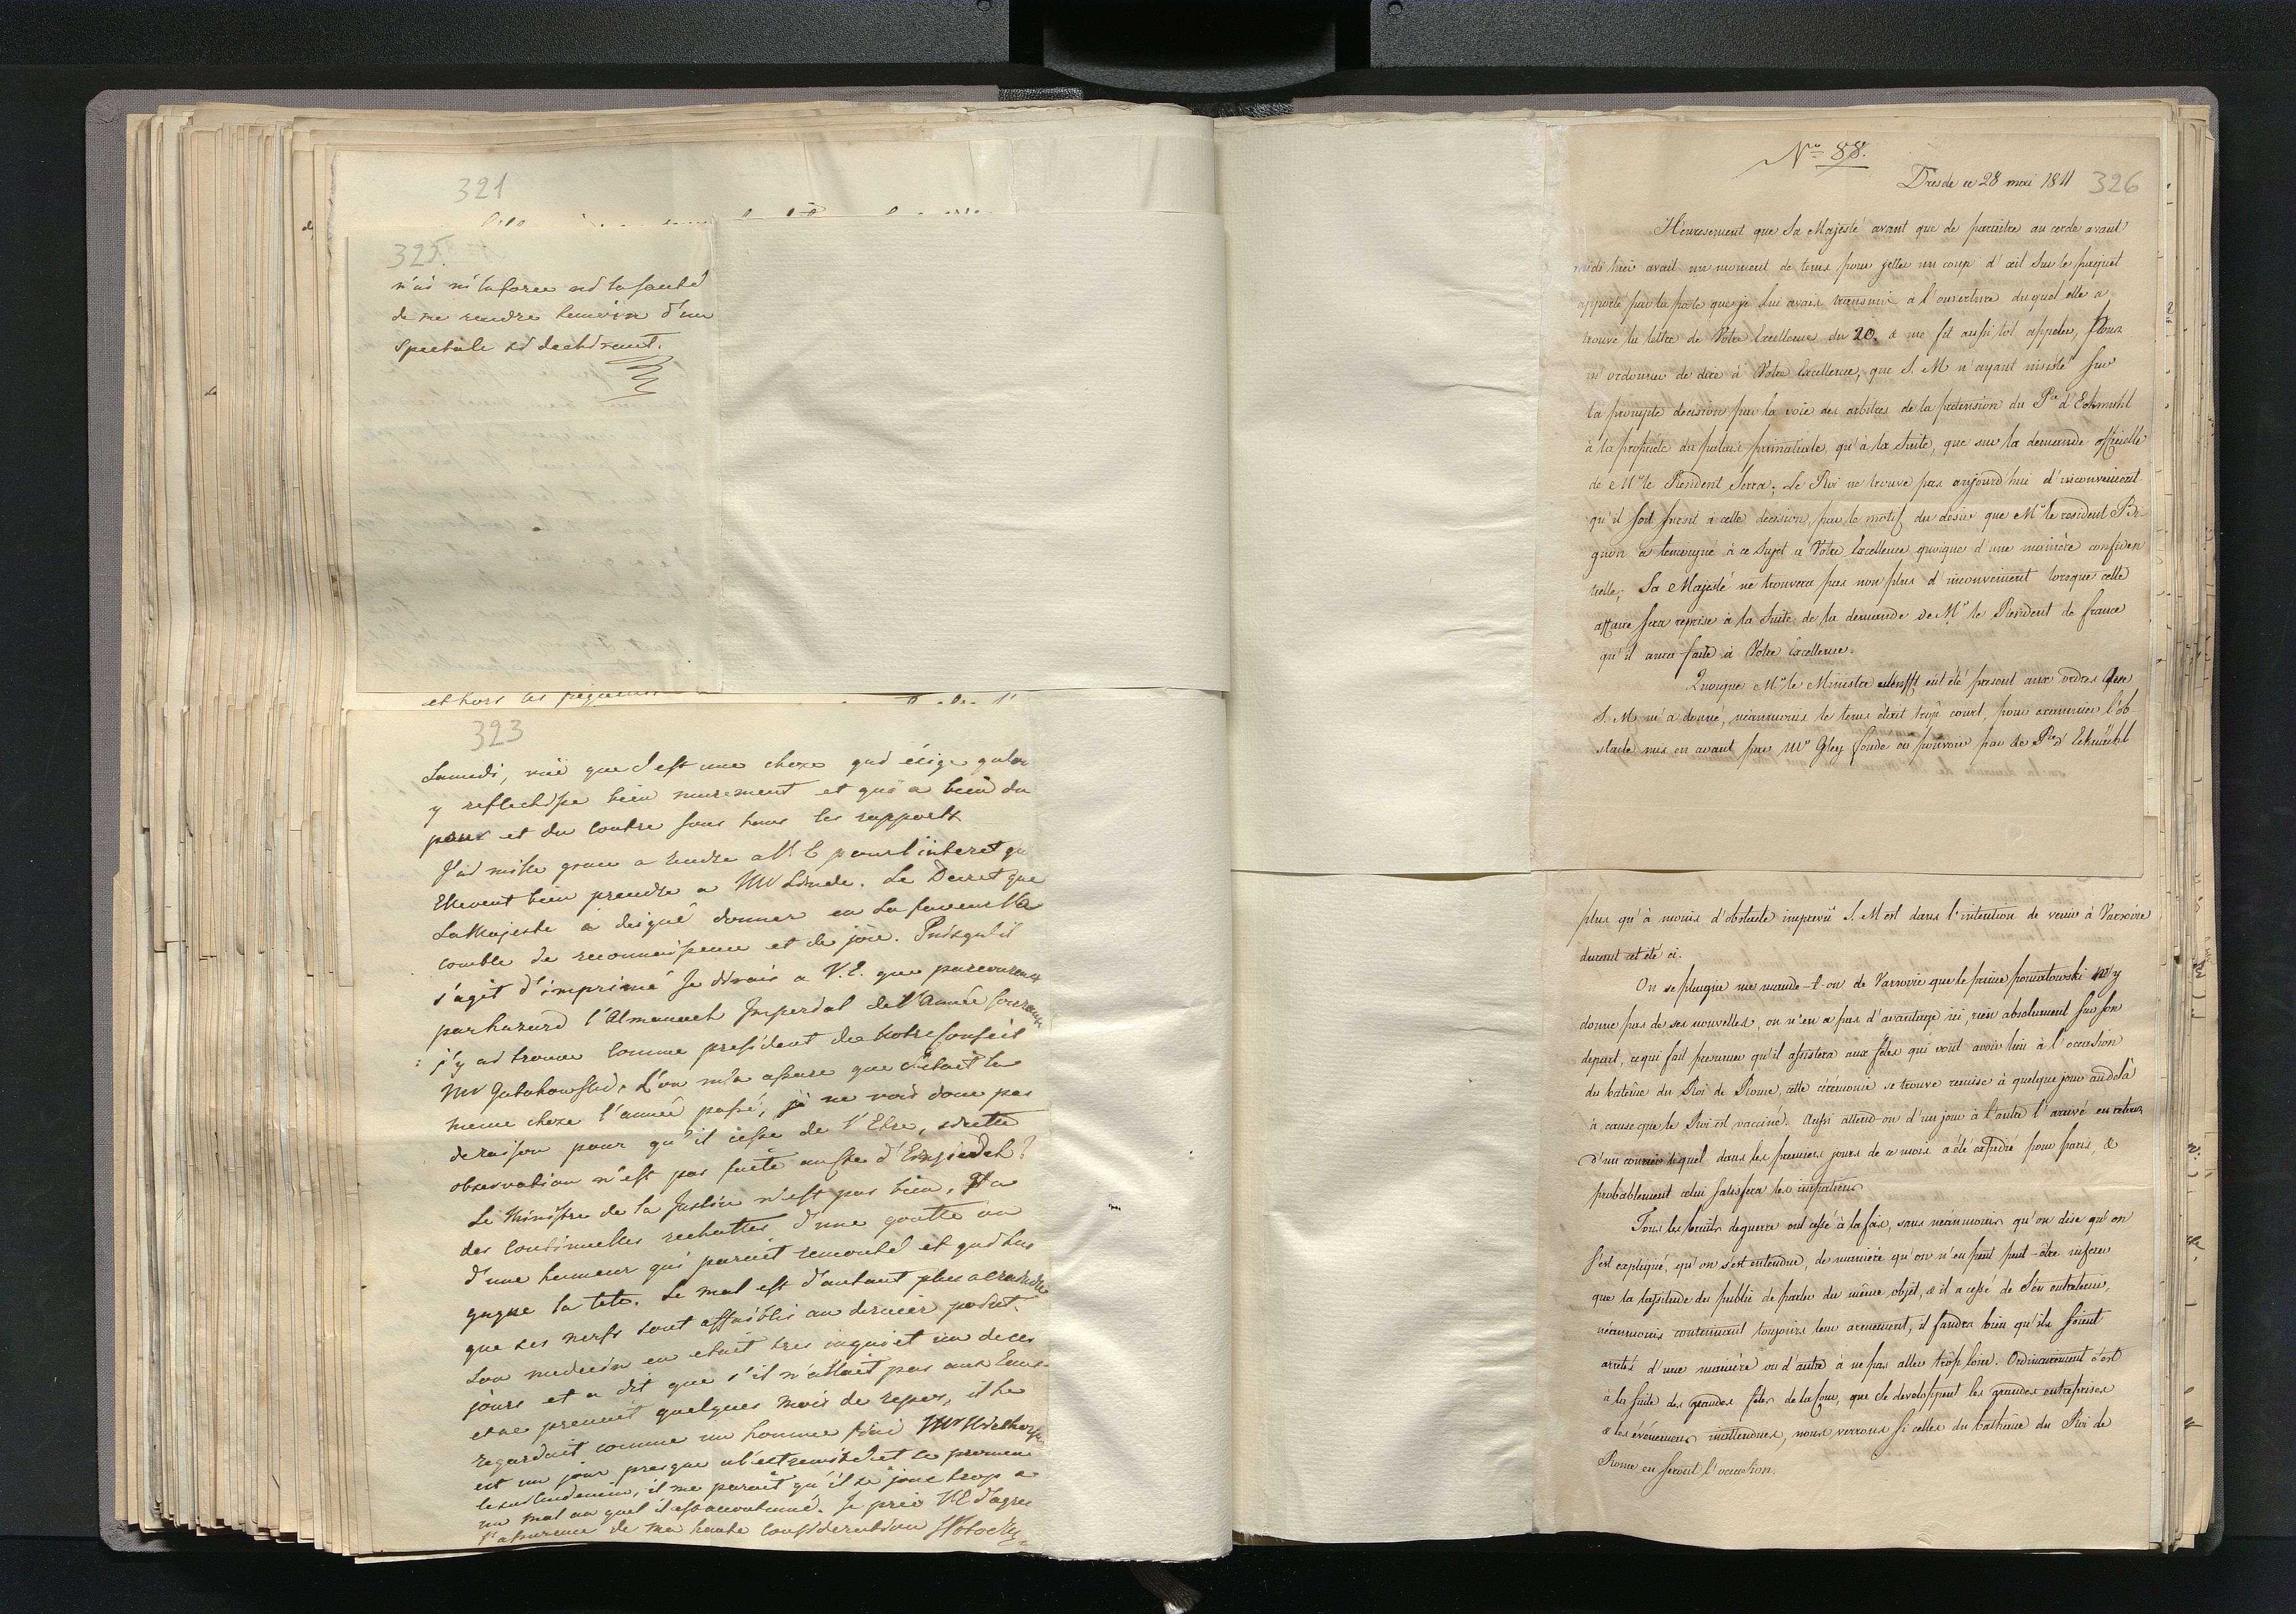 321
325.
n'ai ni la force ni la santé
de me rendre temoin d'un
spectacle si dechirant.
et hors les
323
Samedi, vuë que c'est une chose qui éxige qu'on
y reflechisse bien murement et qui a bien du
pour et du contre sous tous les rapports
J'ai mille grace a rendre a V. E pour l'interet qu
Elle veut bien prendre a Mr Linde. Le Decret que
Sa Majesté a deigné donner en sa faveur l'a
comblé de reconnoissance et de joie. Puisqu'il
s'agit d'imprimé Je dirais a V. E. que parcourant
par hazard l'Almanach Imperial de l'Année
j'y ai trouvé comme president de notre Conseil
Mr Gutakowski. L'on m'a assuré que c'etait la
meme chose l'année passé, je ne vois donc pas
de raison pour qu'il cesse de l'Etre, cette
observation n'est pas faite
Le Ministre de la Justice n'est pas bien, Il a
des continuelles rechuttes d'une goutte ou
d'une humeur qui parait remonté et qui lui
gagne la tete. Le mal est d'autant plus a craindre
que ses nerfs sont affaiblis au dernier point.
Son medecin en etait tres inquiet un de ces
jours et a dit que s'il n'allait pas aux Eaux
et ne prenait quelques mois de repos, il le
regardait comme un homme fini Mr
est un jour presque a l'extremité et se promene
le surlendemain, il me parait qu'il se joue trop a
un mal au quel il est accoutumé. Je prie V E d'agreer
l'assurence de ma haute consideration SPotocki
No 88.
Dresde ce 28 mai 1811 326
Heureusement que Sa Majesté avant que de paraitre au cercle avant
midi hier avait un moment de tems pour jetter un coup d'œil sur le paquet
apporté par la poste que je Lui avais transmis à l'ouverture duquel elle a
trouvé la lettre de Votre Excellence du 20. & me fit aussitot appeler, pour
m'ordonner de dire à Votre Excellence, que S. M n'ayant insisté sur
la prompte decision par la voie des arbitres de la pretension du Pce d'Eckmuhl
à la proprieté du palais primatiale, qu'à la suite, que sur la demande officielle
de Mr le Resident Serra; Le Roi ne trouve pas aujourd'hui d'inconvenient
qu'il soit sursit à cette decision, par le motif du desir que Mr le resident Bi-
gnon a temoigné à ce sujet a Votre Excellence quoique d'une manière confiden
tielle; Sa Majesté ne trouvera pas non plus d'inconvenient lorsque cette
affaire sera reprise à la suite de la demande de Mr le Resident de france
qu'il aura faite à Votre Excellence.
Quoique Mr le Ministre Senfft eût été present aux ordres que
S. M. m'a donné, néanmoins le tems était trop court, pour examiner l'ob
stacle mis en avant par Mr Gley fondé en pouvoir par le Pce d'Eckmühl
plus qu'à moins d'obstacle imprevû S. M est dans l'intention de venir à Varsovie
durant cet été ci.
On se plaigne me mande-t-on de Varsovie que le prince poniatowski n'y
donne pas de ses nouvelles, on n'en a pas d'avantage ici, rien absolument sur son
depart, ce qui fait presumer qu'il assistera aux fêtes qui vont avoir lieu à l'occasion
du batême du Roi de Rome, cette cérémonie se trouve remise à quelque jour audelà
à cause que le Roi est vacciné. Aussi attend-on d'un jour à l'autre l'arrivé en retour
d'un courier lequel dans les premiers jours de ce mois a été expedié pour paris, &
probablement celui satisfera les impatiens
Tous les bruits de guerre ont cessé à la fois, sans néanmoins qu'on dise qu'on
s'est expliqué, qu'on s'est entendu, de manière qu'on n'en peut peut-être inferer
que la lassitude du public de parler du même objet, & il a cessé de s'en entretenir,
néanmoins continuant toujours leur armement, il faudra bien qu'ils soient
arretés d'une manière ou d'autre à ne pas aller trop loin. Ordinairement c'est
à la suite des grandes fêtes de la Cour, que se developpent les grandes entreprises
& les événemens inattendues, nous verrons si celles du bathême du Roi de
Rome en seront l'occasion.